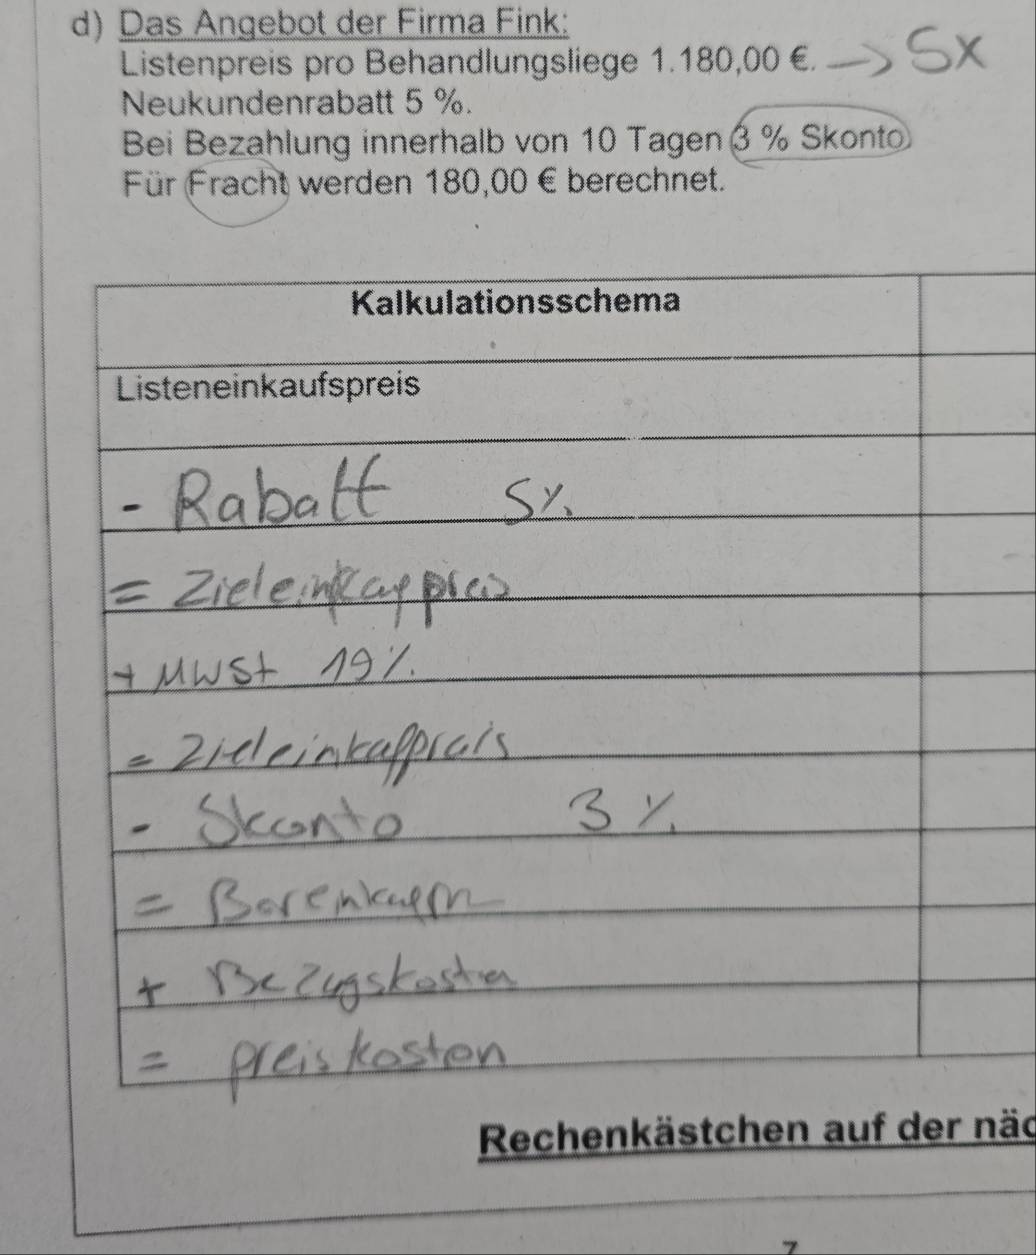 d) Das Angebot der Firma Fink:
Listenpreis pro Behandlungsliege 1.180,00 €. → 5x
Neukundenrabatt 5 %.
Bei Bezahlung innerhalb von 10 Tagen 3 % Skonto
Für Fracht werden 180,00 € berechnet.
Kalkulationsschema
Listeneinkaufspreis
- Rabatt 5%
= Zieleinkaufpreis
+ MWSt 19%
= Zieleinkaufpreis
- Skonto 3 %
=
+ Bezugskosten
= preiskosten
Rechenkästchen auf der näc
7